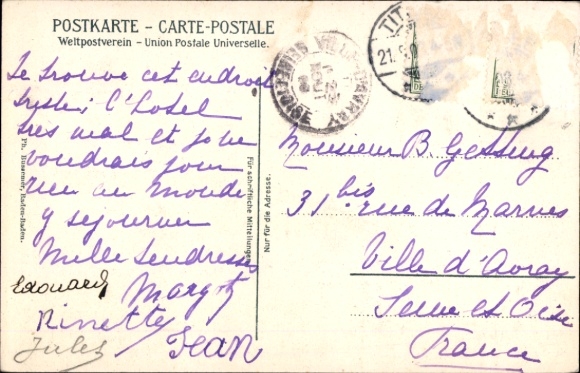 POSTKARTE – CARTE-POSTALE
Weltpostverein – Union Postale Universelle.
TIT
21.8.0
VILLE D'AVRAY
SEINE ET OISE
Je trouve cet endroit
triste; l'hotel
très mal et je ne
voudrais pour
rien au monde
y séjourner
Mille tendresses
Margot
Edouard
Ninette
Jules
Jean
Ph. Bussemer, Baden-Baden.
Für schriftliche Mitteilungen.
Nur für die Adresse.
Monsieur B. Gessing
31 bis rue de Marnes
Ville d'Avray
Seine et Oise
France